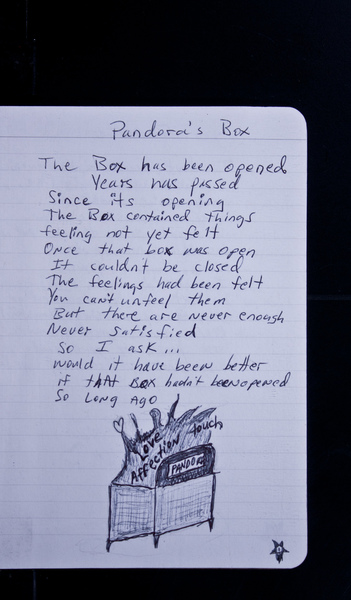 Pandora's Box
The Box has been opened
Years has passed
Since its opening
The Box contained things
feeling not yet felt
Once that box was open
It couldn't be closed
The feelings had been felt
You can't unfeel them
But there are never enough
Never satisfied
So I ask...
would it have been better
if that Box hadn't been opened
So Long Ago
Love
Touch
Affection
PANDORA